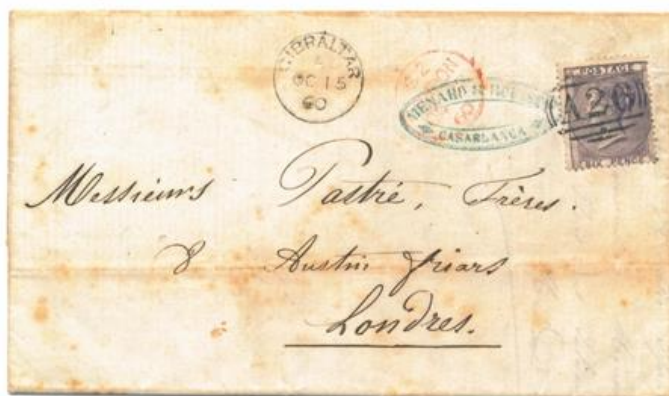 GIBRALTAR
A
OC 15
60
MENARD
CASABLANCA
POSTAGE
A26
SIX PENCE
Messieurs Pastré, Frères.
8 Austin friars
Londres.